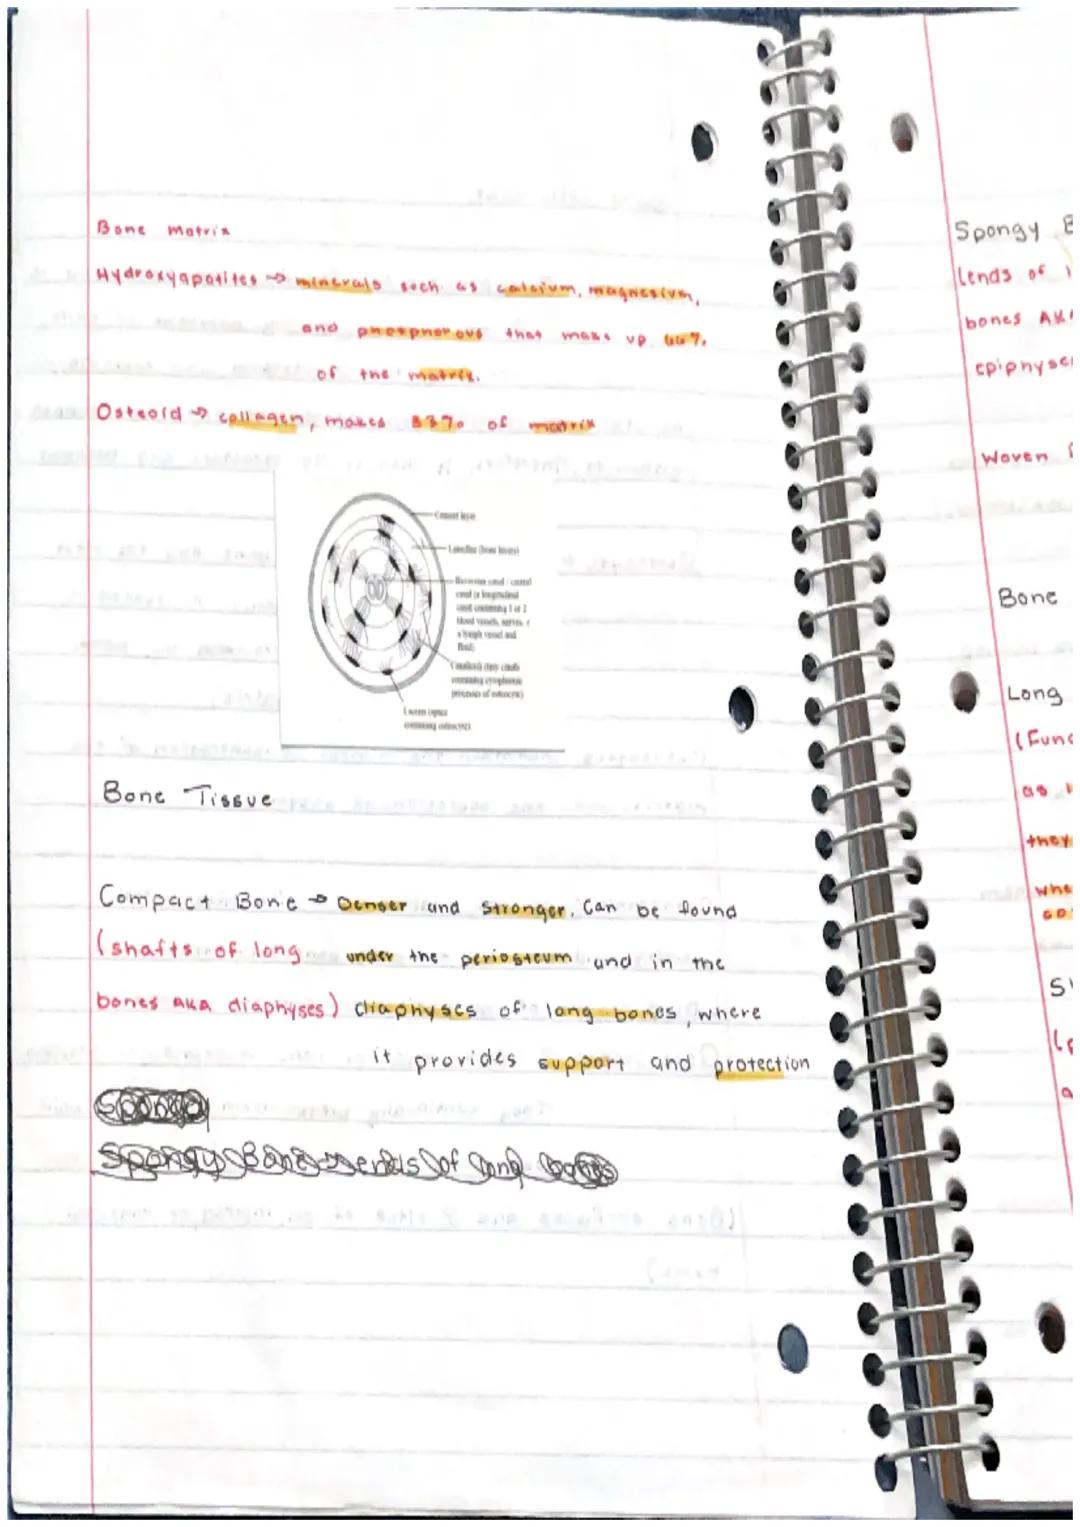 Bone Matrix
Hydroxyapatites → minerals such as calcium, magnesium,
and phosphorous that makes up 66%
of the matrix.
Osteoid → collagen, makes 33% of matrix
Cement layer
Lamellae (bone layers)
Haversian canal - central
canal or longitudinal
canal containing 1 or 2
blood vessels, nerves,
a lymph vessel and
fluid)
Canaliculi (tiny canals
containing cytoplasmic
processes of osteocyte)
Lacuna (space
containing osteocyte)
Bone Tissue
Compact Bone → Denser and stronger. Can be found
(shafts of long under the periosteum and in the
bones AKA diaphyses) diaphyses of long bones, where
it provides support and protection
Spongy
Spongy Bone → ends of long bones
Spongy
(ends of
bones AKA
Woven
Bone
Long
as
they